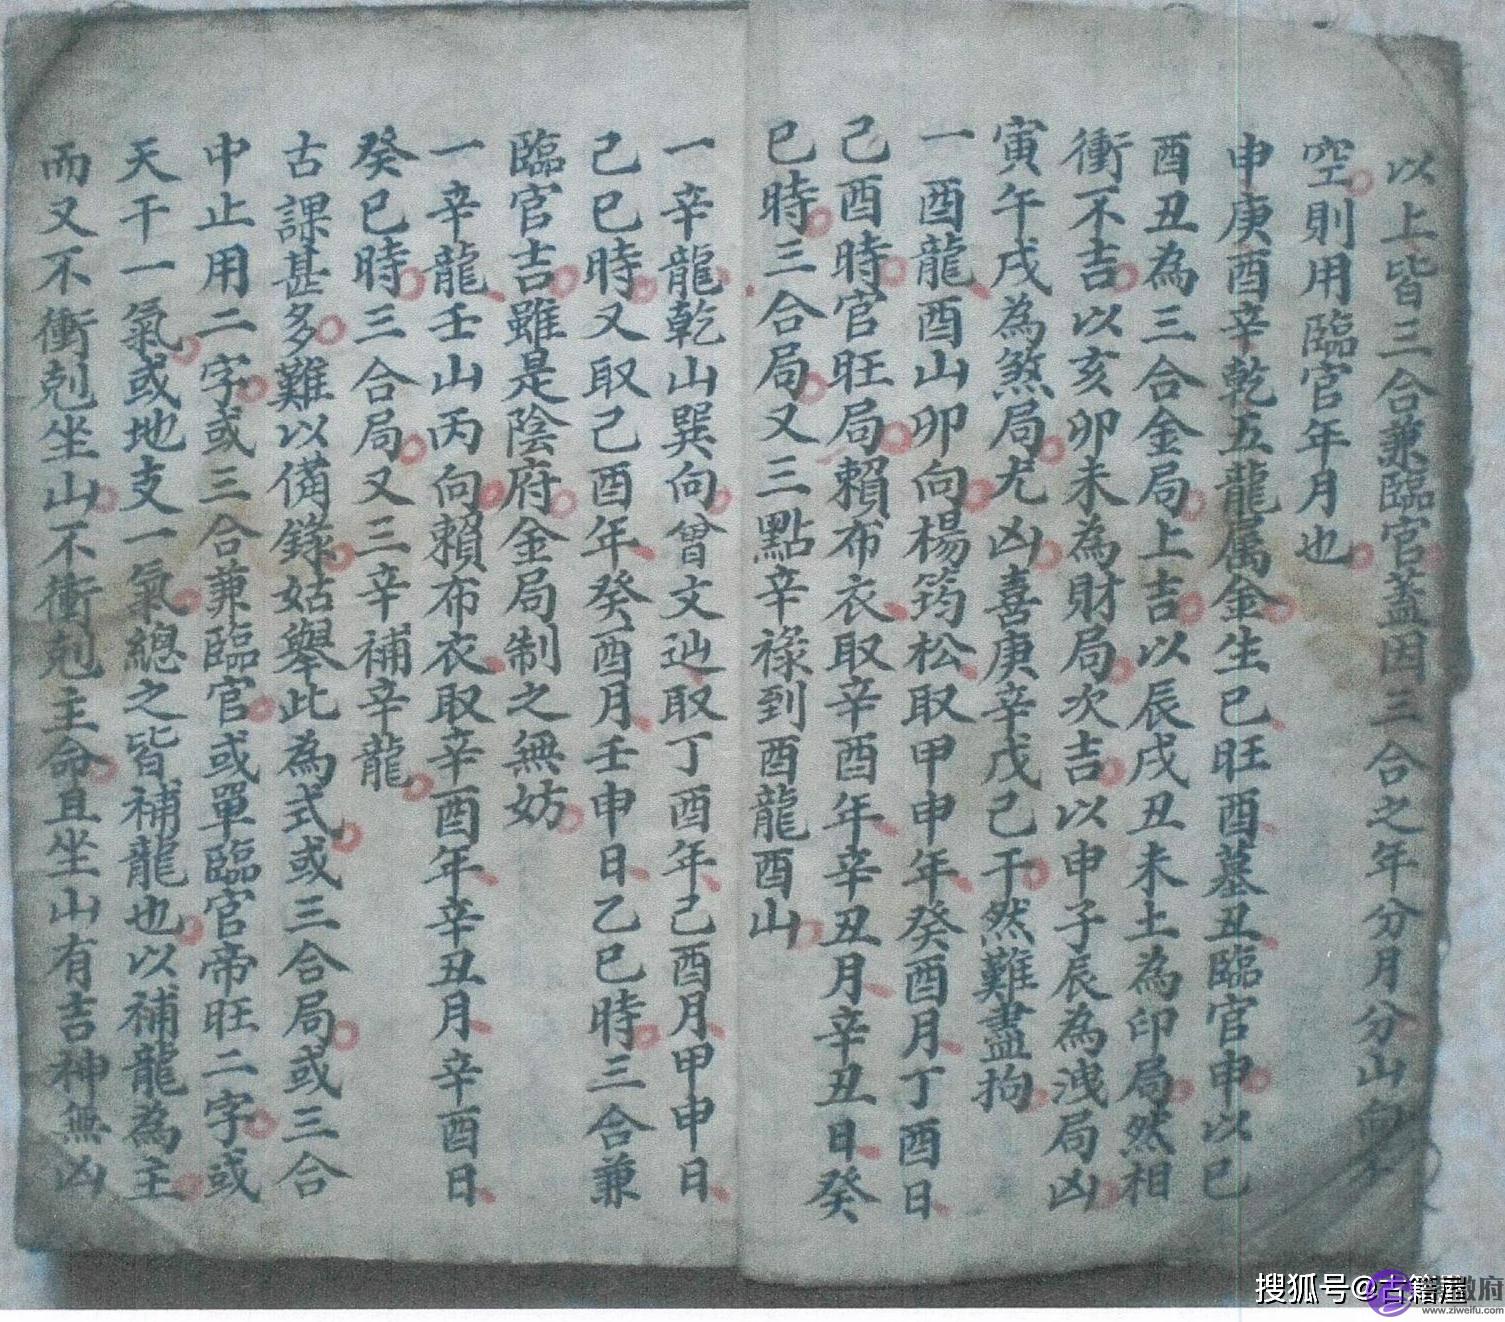 以上皆三合兼臨官蓋因三合之年分月分山向不
空則用臨官年月也
申庚酉辛乾五龍属金生巳旺酉墓丑臨官申以巳
酉丑為三合金局上吉以辰戌丑未土為印局然相
衝不吉以亥卯未為財局次吉以申子辰為洩局凶
寅午戌為煞局尤凶喜庚辛戊己干然難盡拘
一酉龍酉山卯向楊筠松取甲申年癸酉月丁酉日
己酉時官旺局賴布衣取辛酉年辛丑月辛丑日癸
巳時三合局又三點辛祿到酉龍酉山
一辛龍乾山巽向曾文辿取丁酉年己酉月甲申日
己巳時又取己酉年癸酉月壬申日乙巳時三合兼
臨官吉雖是陰府金局制之無妨
一辛龍壬山丙向賴布衣取辛酉年辛丑月辛酉日
癸巳時三合局又三辛補辛龍
古課甚多難以備錄姑舉此為式或三合局或三合
中止用二字或三合兼臨官或單臨官帝旺二字或
天干一氣或地支一氣總之皆補龍也以補龍為主
而又不衝剋坐山不衝剋主命且坐山有吉神無凶
搜狐号@古籍屋
www.ziweifu.com